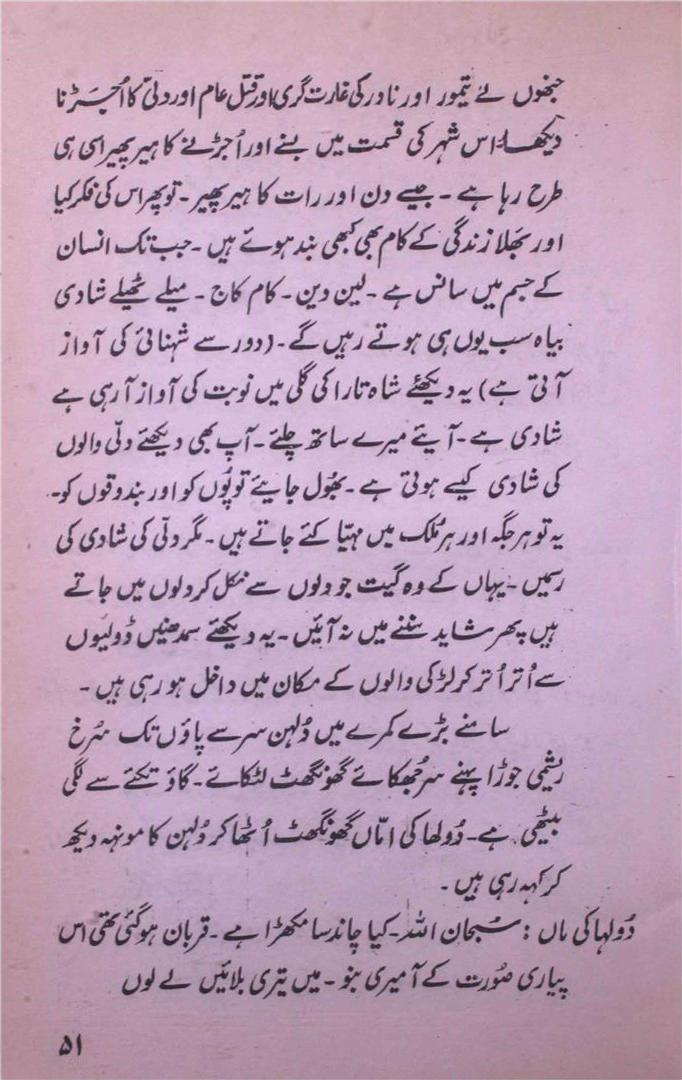 جنھوں نے تیمور اور نادر کی غارت گری اور قتل عام اور دلّی کا اُجڑنا
دیکھا۔ اس شہر کی قسمت میں بسنے اور اُجڑنے کا ہیر پھیر اسی ہی
طرح رہا ہے ۔ جیسے دن اور رات کا ہیر پھیر ۔ تو پھر اس کی فکر کیا
اور بَھلا زندگی کے کام بھی کبھی بند ہوئے ہیں ۔ جب تک انسان
کے جسم میں سانس ہے ۔ لین دین ۔ کام کاج ۔ میلے ٹھیلے شادی
بیاہ سب یوں ہی ہوتے رہیں گے ۔ (دور سے شہنائی کی آواز
آتی ہے) یہ دیکھئے شاہ تارا کی گلی میں نوبت کی آواز آ رہی ہے
شادی ہے ۔ آیئے میرے ساتھ چلئے ۔ آپ بھی دیکھئے دلّی والوں
کی شادی کیسے ہوتی ہے ۔ بھُول جایئے توپوں کو اور بندوقوں کو ۔
یہ تو ہر جگہ اور ہر مُلک میں مہیّا کئے جاتے ہیں ۔ مگر دلّی کی شادی کی
رسمیں ۔ یہاں کے وہ گیت جو دلوں سے نکل کر دلوں میں جاتے
ہیں پھر شاید سننے میں نہ آئیں ۔ یہ دیکھئے سمدھنیں ڈولیوں
سے اُتر اُتر کر لڑکی والوں کے مکان میں داخل ہو رہی ہیں ۔
سامنے بڑے کمرے میں دُلہن سر سے پاؤں تک سُرخ
ریشمی جوڑا پہنے سر جُھکائے گھونگھٹ لٹکائے ۔ گاؤ تکئے سے لگی
بیٹھی ہے ۔ دُولھا کی امّاں گھونگھٹ اُٹھا کر دُلہن کا مونہہ دیکھ
کر کہہ رہی ہیں ۔
دُولہا کی ماں : سُبحان اللہ ۔ کیا چاند سا مکھڑا ہے ۔ قربان ہو گئی تھی اس
پیاری صُورت کے آ میری بنو ۔ میں تیری بلائیں لے لوں
۵۱